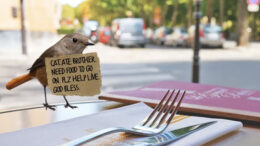 CAT ATE BROTHER
NEED FOOD TO GO
ON. PLZ HELP LIVE
GOD BLESS.